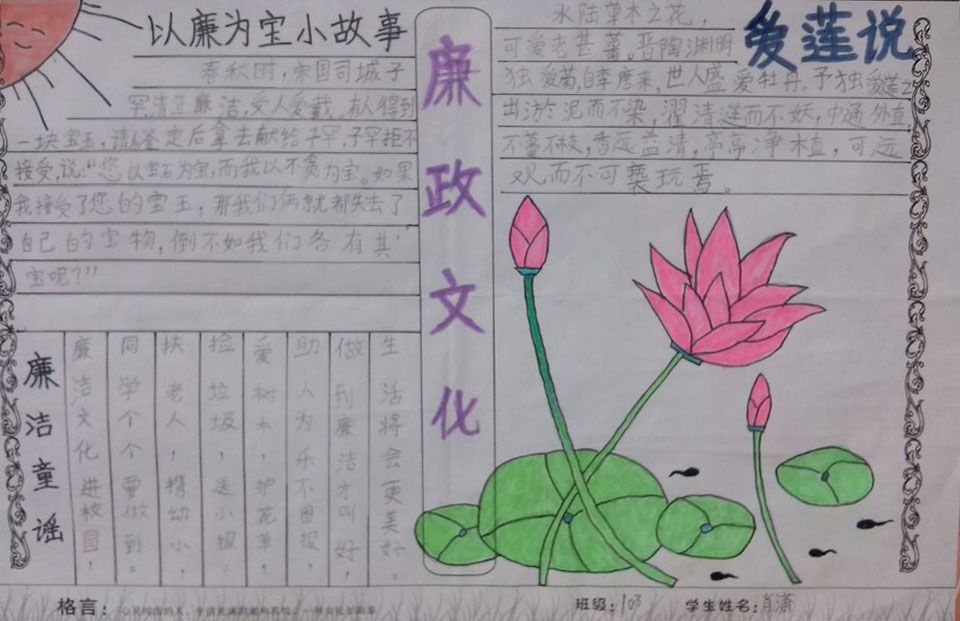 以廉为宝小故事
春秋时,宋国司城子
罕清正廉洁,受人爱戴。有人得到
一块宝玉,请人鉴定后拿去献给子罕,子罕拒不
接受,说:"您以宝石为宝,而我以不贪为宝。如果
我接受了您的宝玉,那我们俩就都失去了
自己的宝物,倒不如我们各有其
宝呢?"
廉政文化
爱莲说
水陆草木之花,
可爱者甚蕃。晋陶渊明
独爱菊,自李唐来,世人盛爱牡丹。予独爱莲之
出淤泥而不染,濯清涟而不妖,中通外直,
不蔓不枝,香远益清,亭亭净植,可远
观而不可亵玩焉。
廉洁童谣
廉洁文化进校园,
同学个个要做到。
扶老人,携幼小,
捡垃圾,送小报。
爱树木,护花草,
助人为乐不图报,
做到廉洁才叫好,
生活将会更美好。
格言:心灵纯洁的人,生活充满
班级:103
学生姓名:肖潇